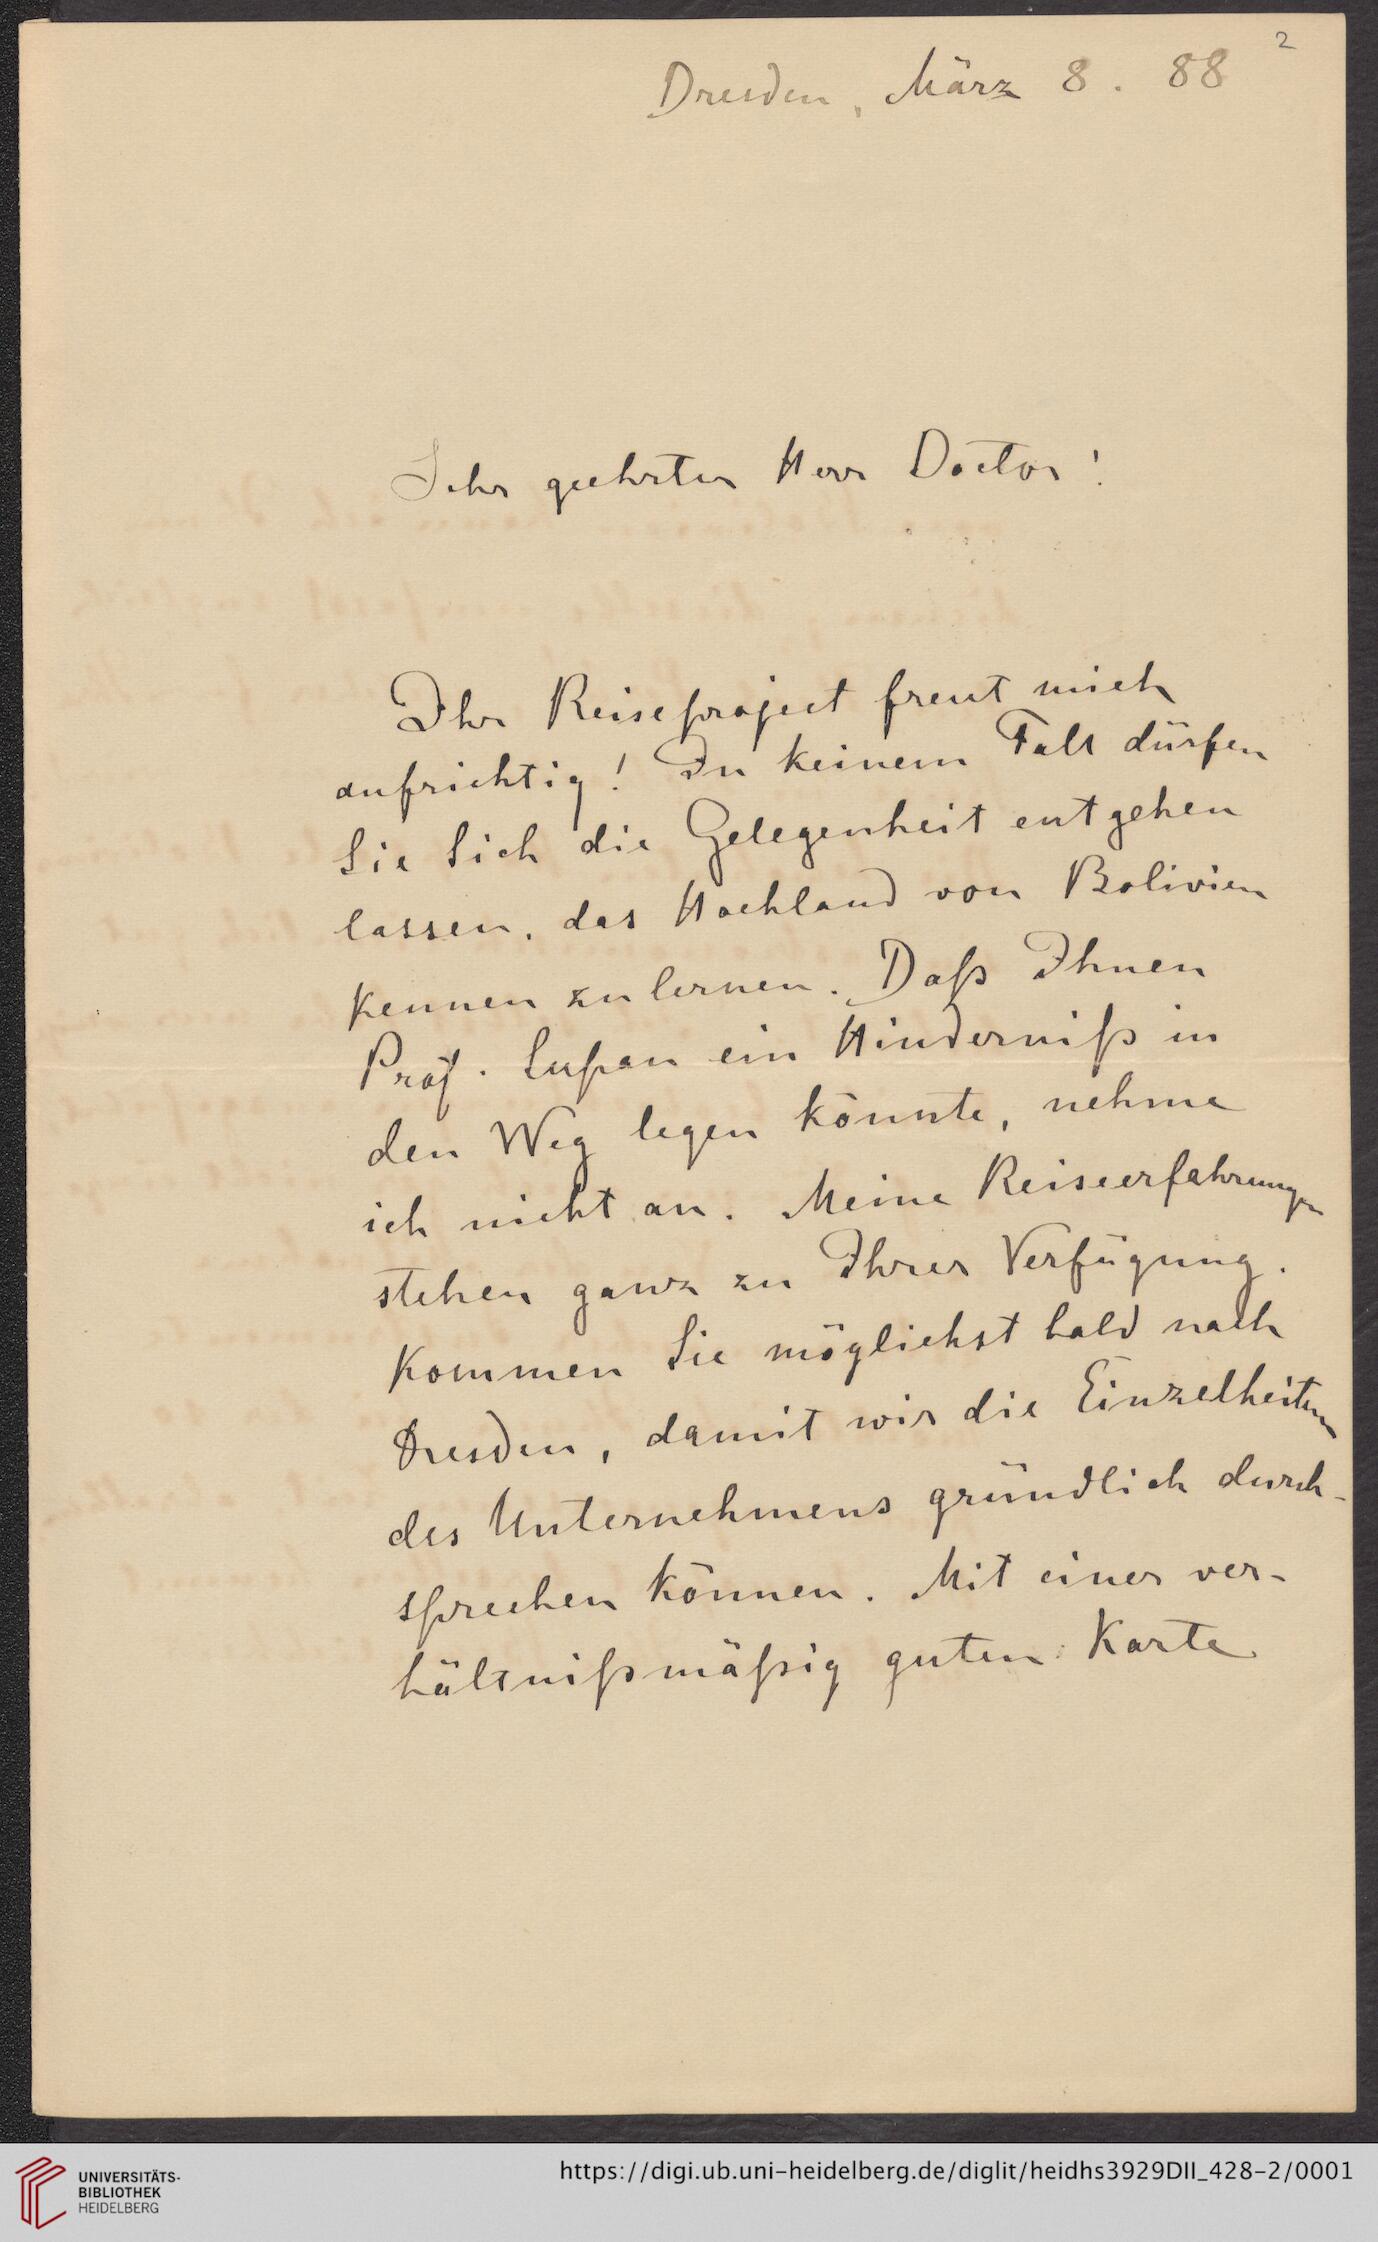 2
Dresden, März 8. 88
Sehr geehrter Herr Doctor!
Ihr Reiseproject freut mich
aufrichtig! In keinem Fall dürfen
Sie Sich die Gelegenheit entgehen
lassen, das Hochland von Bolivien
kennen zu lernen. Daß Ihnen
Prof. Supan ein Hinderniß in
den Weg legen könnte, nehme
ich nicht an. Meine Reiseerfahrungen
stehen ganz zu Ihrer Verfügung.
Kommen Sie möglichst bald nach
Dresden, damit wir die Einzelheiten
des Unternehmens gründlich durch-
sprechen können. Mit einer ver-
hältnißmäßig guten Karte
UNIVERSITÄTS-
BIBLIOTHEK
HEIDELBERG
https://digi.ub.uni-heidelberg.de/diglit/heidhs3929DII_428-2/0001